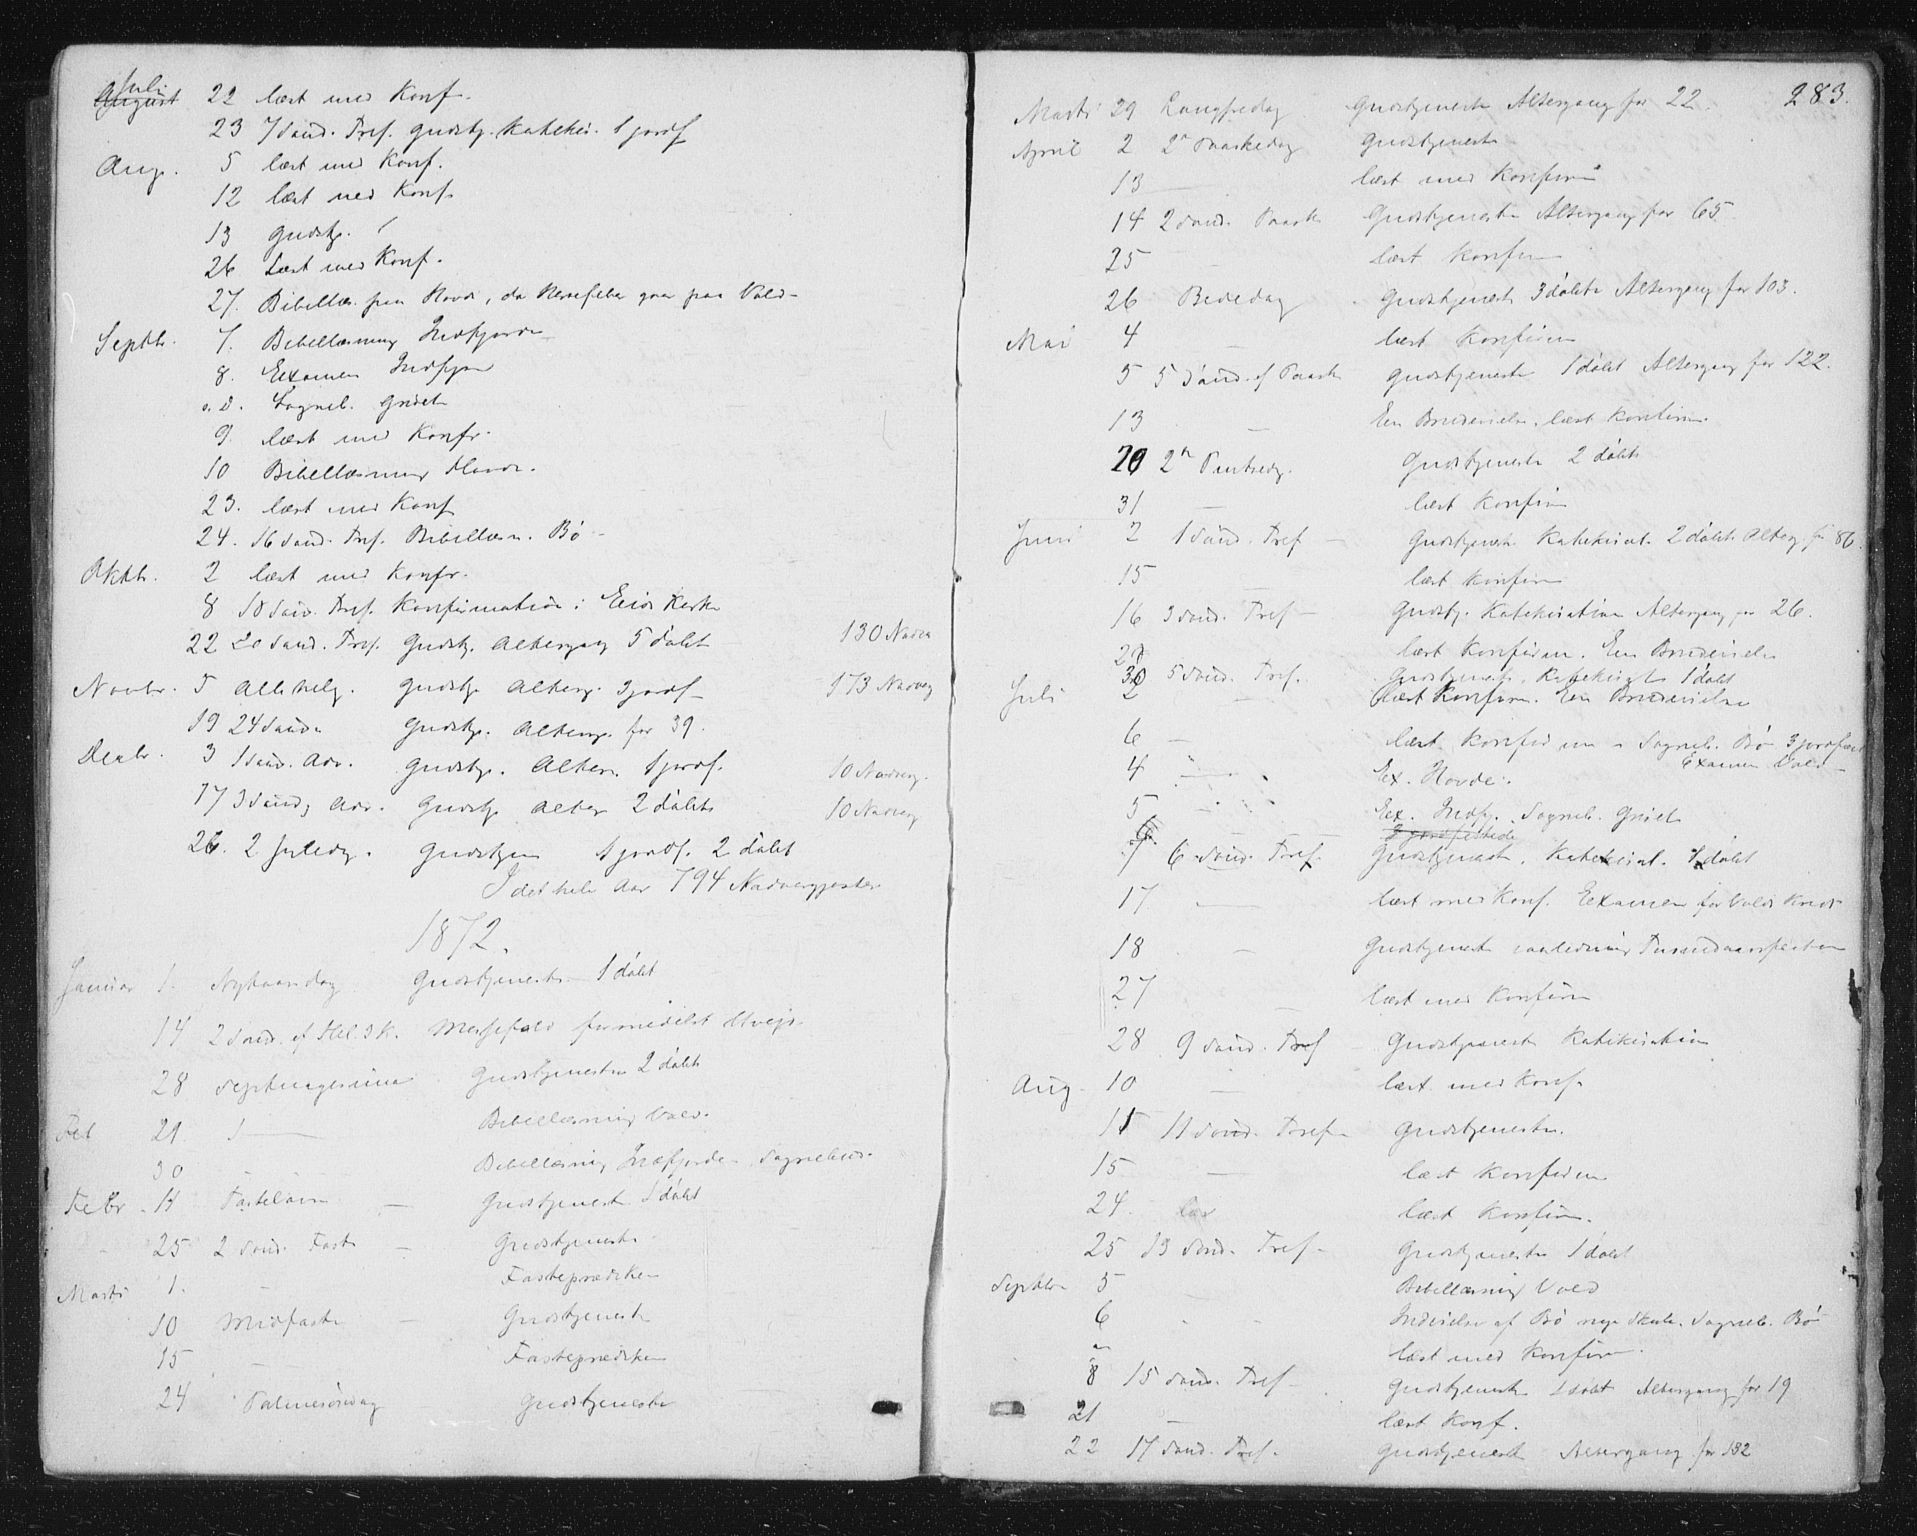 Juli
August 22 læst med Konf.
23 7 Sønd. Tref. Gudstj. Katekis. 1 jordf
Aug. 5 læst med Konf.
12 læst med Konf.
13 Gudstj.
26 Læst med Konf.
27. Bibellæs. paa Hovde, da Messefaldet paa Vold
Septbr. 7. Bibellæsning Indfjorden
8. Examen Indfjor
s. D. Sogneb. Gridet
9. læst med Konfr.
10 Bibellæsning Hovde.
23. læst med Konf
24. 16 Sønd. Tref. Bibellæsn. Bø
Oktbr. 2 læst med Konfr.
8 18 Sønd. Tref. Konfirmation i Eids Kirke
22 20 Sønd. Tref. Gudstj. Altergang 5 døbt 130 Nadv
Novbr. 5 Allehelg. Gudstj. Alterg. 3 jordf 173 Nadverg
19 24 Sønd. Gudstj. Alterg. for 39.
Decbr. 3 1 Sønd. Adv. Gudstj. Alterg. 1 jordf. 10 Nadverg.
17 3 Sønd. Adv. Gudstj. Alterg 2 døbte 10 Nadverg
26. 2 Juledg. Gudstjen 1 jordf. 2 døbt
I det hele Aar 794 Nadvergjester
1872.
Januar 1. Nytaarsdag Gudstjeneste 1 døbt
14 2 Sønd. ef Hel. 3 K. Messefald formedelst Uveir
28 Septuagesima Gudstjeneste 2 døbt
Feb 29 Bibellæsning Vold.
30 Bibellæsning Indfjorden Sognebud.
Febr. 11 Fastelavn — Gudstjeneste 1 døbt
25 2 Sønd. Faste — Gudstjeneste
Marts 1. Fasteprædiken
10 Midfaste — Gudstjeneste
15 — Fasteprædiken
24 Palmesøndag Gudstjeneste
283.
Marts 29 Langfredag Gudstjeneste Altergang for 22.
April 2 2n Paaskedag Gudstjeneste
13 — læst med Konfirm
14 2 Sønd. Paaske Gudstjeneste Altergang for 65
25 — læst Konfirm
26 Bededag Gudstjenest 3 døbte Altergang for 103.
Mai 4 — læst Konfirm
5 5 Sønd. ef Paaske Gudstjeneste 1 døbt Altergang for 122.
13 — En Brudevielse, læst Konfirm.
20 2n Pintsedg. Gudstjeneste 2 døbte
31 — læst Konfirm
Juni 2 1 Sønd. Tref — Gudstjeneste Katekisat. 2 døbte Alterg. for 86.
15 læst Konfirm
16 3 Sønd. Tref — Gudstj. Katekisation Altergang for 26.
27 læst Konfirm. En Brudevielse
30 5 Sønd. Tref. Gudstjeneste, Katekisat. 1 døbt
Juli 2 — læst Konfirm. En Brudevielse
6 — læst Konfirm Sogneb. Bø 3 jordfæst
Examen Vold
4 Ex. Hovde.
5 Ex. Indfj. Sogneb. Gridet
7 6 Sønd. Tref. Gudstjeneste, Katekisat. 1 døbt
17 — læst med Konf. Examen for Volds Kreds
18 — Gudstjeneste i anledning Tusendaarsfesten
27 — læst med Konfirm
28 9 Sønd. Tref — Gudstjeneste Katekisation
Aug. 10 — læst med Konf.
11 11 Sønd. Tref — Gudstjeneste.
15 — læst Konfirm
24. læst Konfirm.
25 13 Sønd. Tref — Gudstjeneste 1 døbt
Septbr 5 — Bibellæsning Vold
6 Indvielse af Bø nye Skole. Sogneb. Bø
læst med Konfirm.
8 15 Sønd. Tref — Gudstjeneste 1 døbt Altergang for 19
21 — læst Konf.
22 17 Sønd. Tref. Gudstjeneste Altergang for 132